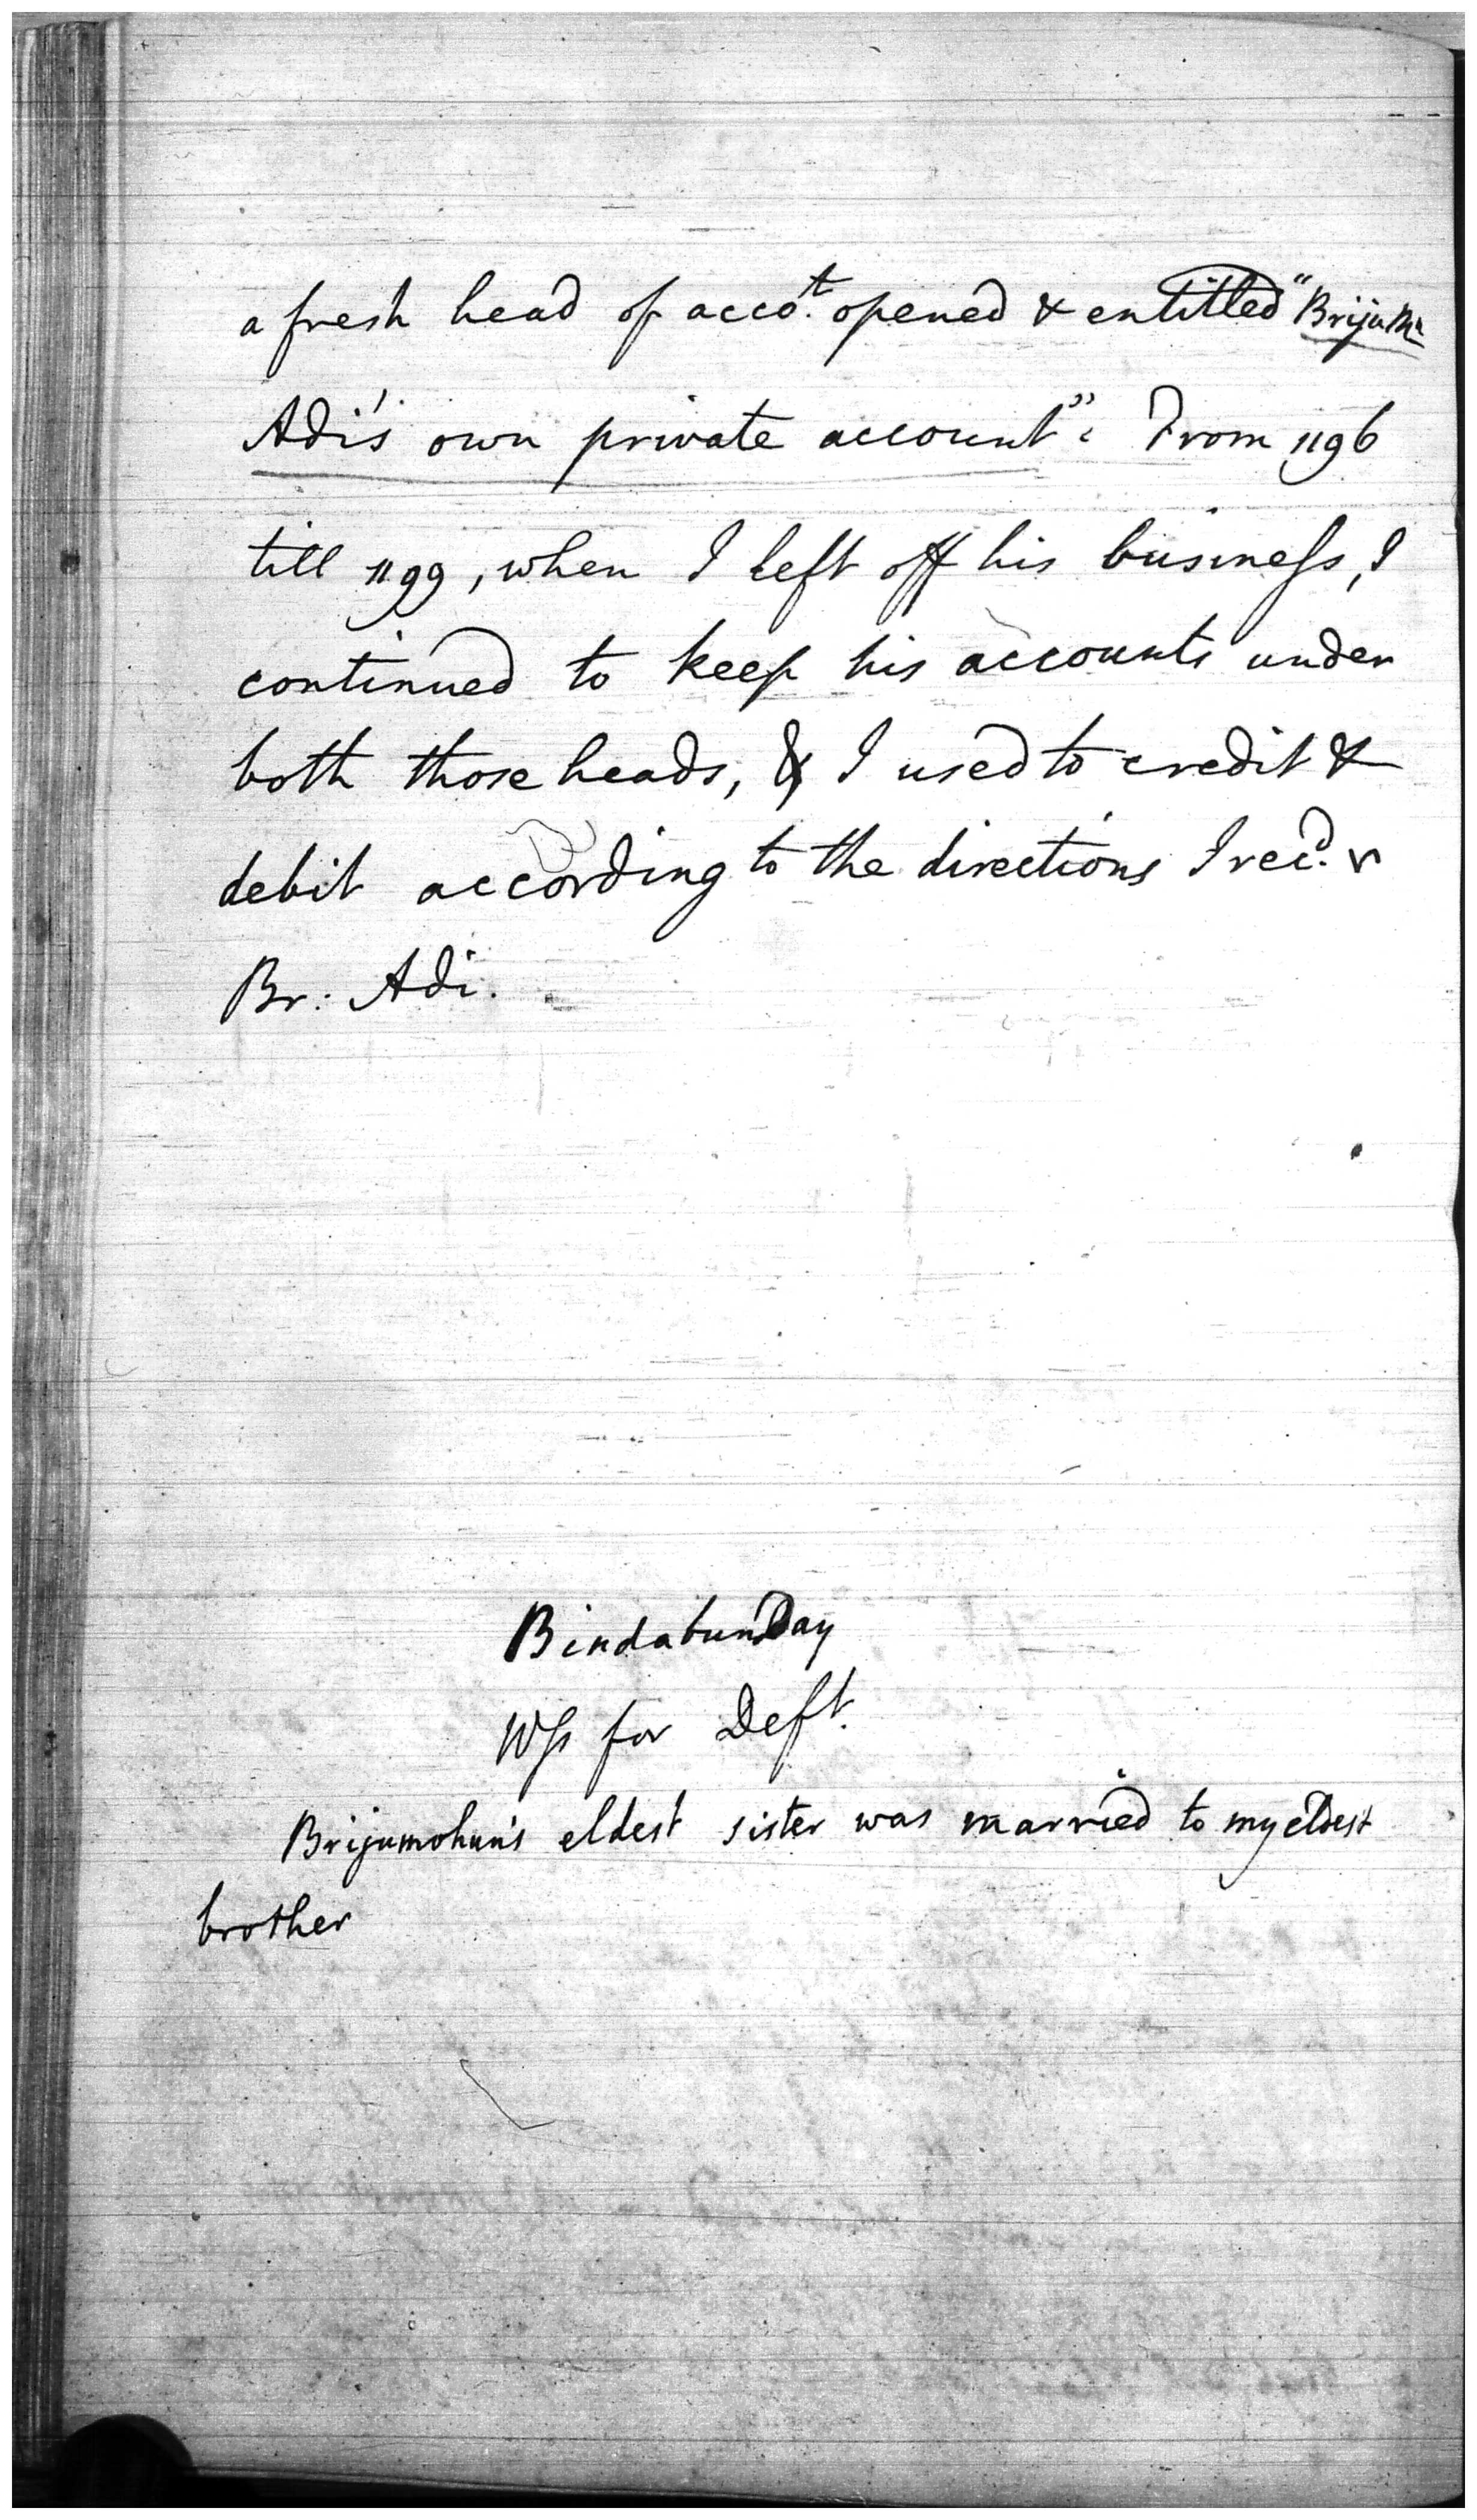 a fresh head of accot. opened & entitled "Briju M:
Adi's own private account". From 1196
till 1199, when I left off his business, I
continued to keep his accounts under
both those heads, & I used to credit &
debit according to the directions I recd.
Br: Adi.
Bindabun Day
Ws for Deft.
Brijumohun's eldest sister was married to my eldest
brother